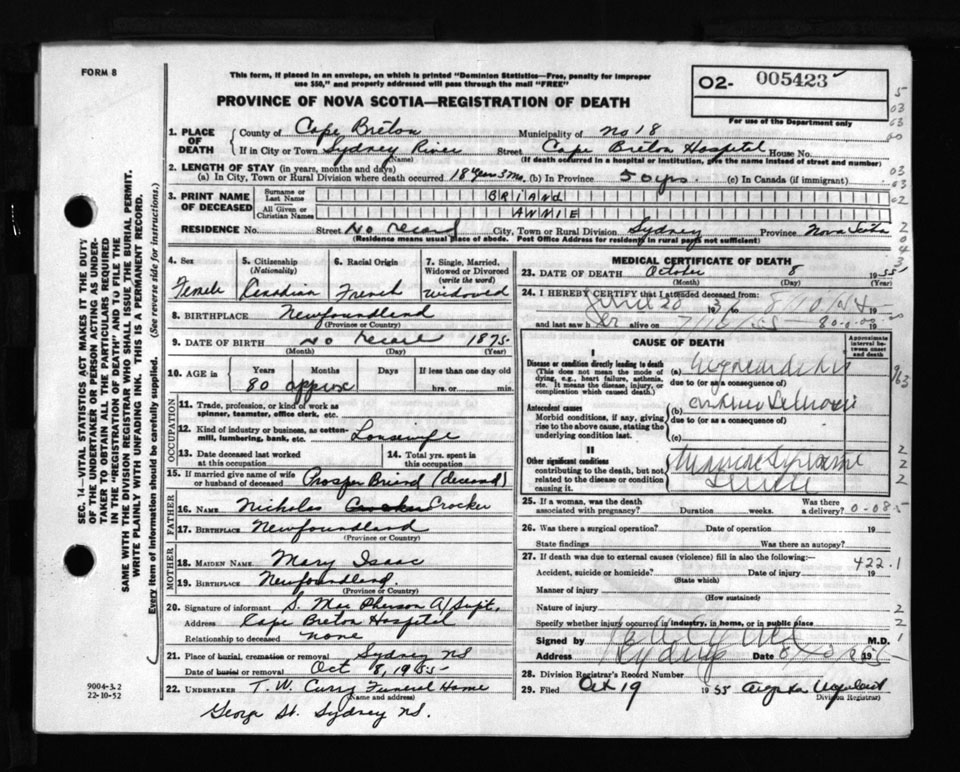 FORM 8
This form, if placed in an envelope, on which is printed "Dominion Statistics—Free, penalty for improper
use $50," and properly addressed will pass through the mail "FREE"
O2- 005423
For use of the Department only
PROVINCE OF NOVA SCOTIA—REGISTRATION OF DEATH
1. PLACE OF DEATH
County of Cape Breton Municipality of No 18
If in City or Town Sydney River Street Cape Breton Hospital House No.
(Name) (If death occurred in a hospital or institution, give the name instead of street and number)
2. LENGTH OF STAY (in years, months and days)
(a) In City, Town or Rural Division where death occurred 18 years 3 Mo. (b) In Province 50 yrs. (c) In Canada (if immigrant)
3. PRINT NAME OF DECEASED
Surname or Last Name BRIAND
All Given or Christian Names ANNIE
RESIDENCE No. Street No record City, Town or Rural Division Sydney Province Nova Scotia
(Residence means usual place of abode. Post Office Address for residents in rural parts not sufficient)
4. Sex Female
5. Citizenship (Nationality) Canadian
6. Racial Origin French
7. Single, Married, Widowed or Divorced (write the word) widowed
8. BIRTHPLACE Newfoundland
(Province or Country)
9. DATE OF BIRTH No record 1875
(Month) (Day) (Year)
10. AGE in Years Months Days If less than one day old
80 approx hrs. or min.
OCCUPATION
11. Trade, profession, or kind of work as
spinner, teamster, office clerk, etc.
12. Kind of industry or business, as cotton-
mill, lumbering, bank, etc. Housewife
13. Date deceased last worked
at this occupation
14. Total yrs. spent in
this occupation
15. If married give name of wife
or husband of deceased Prosper Briand (deceased)
FATHER
16. Name Nicholas Crocker
17. Birthplace Newfoundland
(Province or Country)
MOTHER
18. Maiden Name Mary Isaac
19. Birthplace Newfoundland.
(Province or Country)
20. Signature of informant S. Mac Pherson A/Supt.
Address Cape Breton Hospital
Relationship to deceased none
21. Place of burial, cremation or removal Sydney NS
Date of burial or removal Oct 8, 1955
22. Undertaker T. W. Curry Funeral Home
(Name and address)
George St. Sydney NS.
MEDICAL CERTIFICATE OF DEATH
23. DATE OF DEATH October 8 1955
(Month) (Day) (Year)
24. I HEREBY CERTIFY that I attended deceased from:
and last saw her alive on
CAUSE OF DEATH
Approximate interval between onset and death
I
Disease or condition directly leading to death
(This does not mean the mode of
dying, e.g., heart failure, asthenia,
etc. It means the disease, injury, or
complication which caused death.)
(a)
due to (or as a consequence of)
Antecedent causes
Morbid conditions, if any, giving
rise to the above cause, stating the
underlying condition last.
(b)
due to (or as a consequence of)
(c)
II
Other significant conditions
contributing to the death, but not
related to the disease or condition
causing it.
25. If a woman, was the death
associated with pregnancy? Duration weeks. Was there
a delivery?
26. Was there a surgical operation? Date of operation 19
State findings Was there an autopsy?
27. If death was due to external causes (violence) fill in also the following:—
Accident, suicide or homicide? Date of injury 19
422.1
(State which)
Manner of injury
(How sustained)
Nature of injury
Specify whether injury occurred in industry, in home, or in public place
Signed by M.D.
Address Sydney Date
28. Division Registrar's Record Number
29. Filed Oct 19 1955
Division Registrar)
SEC. 14—VITAL STATISTICS ACT MAKES IT THE DUTY
OF THE UNDERTAKER OR PERSON ACTING AS UNDER-
TAKER TO OBTAIN ALL THE PARTICULARS REQUIRED
IN THE "REGISTRATION OF DEATH" AND TO FILE THE
SAME WITH THE DIVISION REGISTRAR WHO SHALL ISSUE THE BURIAL PERMIT.
WRITE PLAINLY WITH UNFADING INK. THIS IS A PERMANENT RECORD.
Every item of information should be carefully supplied. (See reverse side for instructions.)
9004-3.2
22-10-52